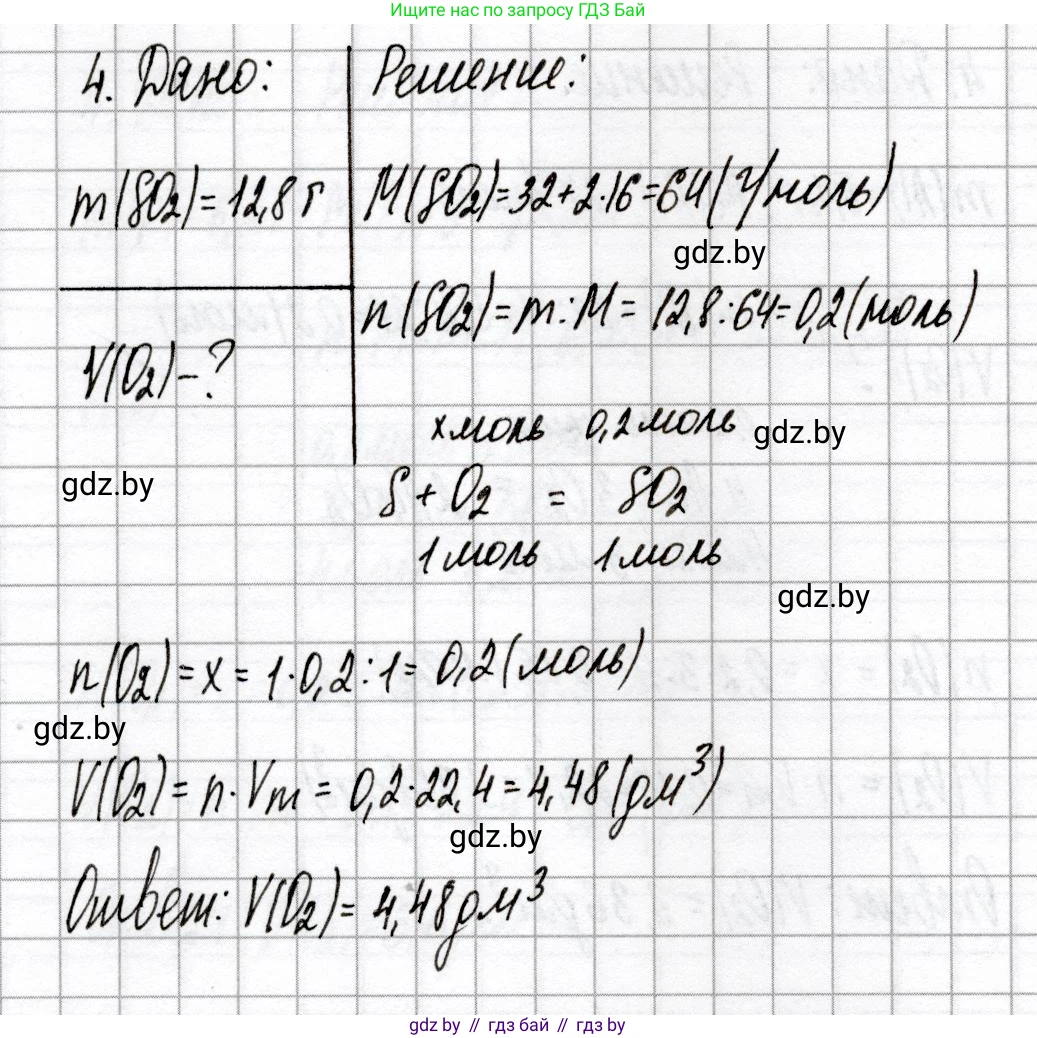 Ищите нас по запросу ГДЗ Бай
4. Дано:
Решение:
m(SO₂)=12,8 г
M(SO₂)=32+2·16=64(г/моль)
gdz.by
n(SO₂)=m:M=12,8:64=0,2(моль)
V(O₂)-?
xмоль 0,2моль
gdz.by
gdz.by
S+O₂ = SO₂
1моль 1моль
gdz.by
n(O₂)=x=1·0,2:1=0,2(моль)
gdz.by
V(O₂)=n·Vm=0,2·22,4=4,48(дм³)
gdz.by
Ответ: V(O₂)=4,48дм³
gdz.by // гдз бай // гдз.by